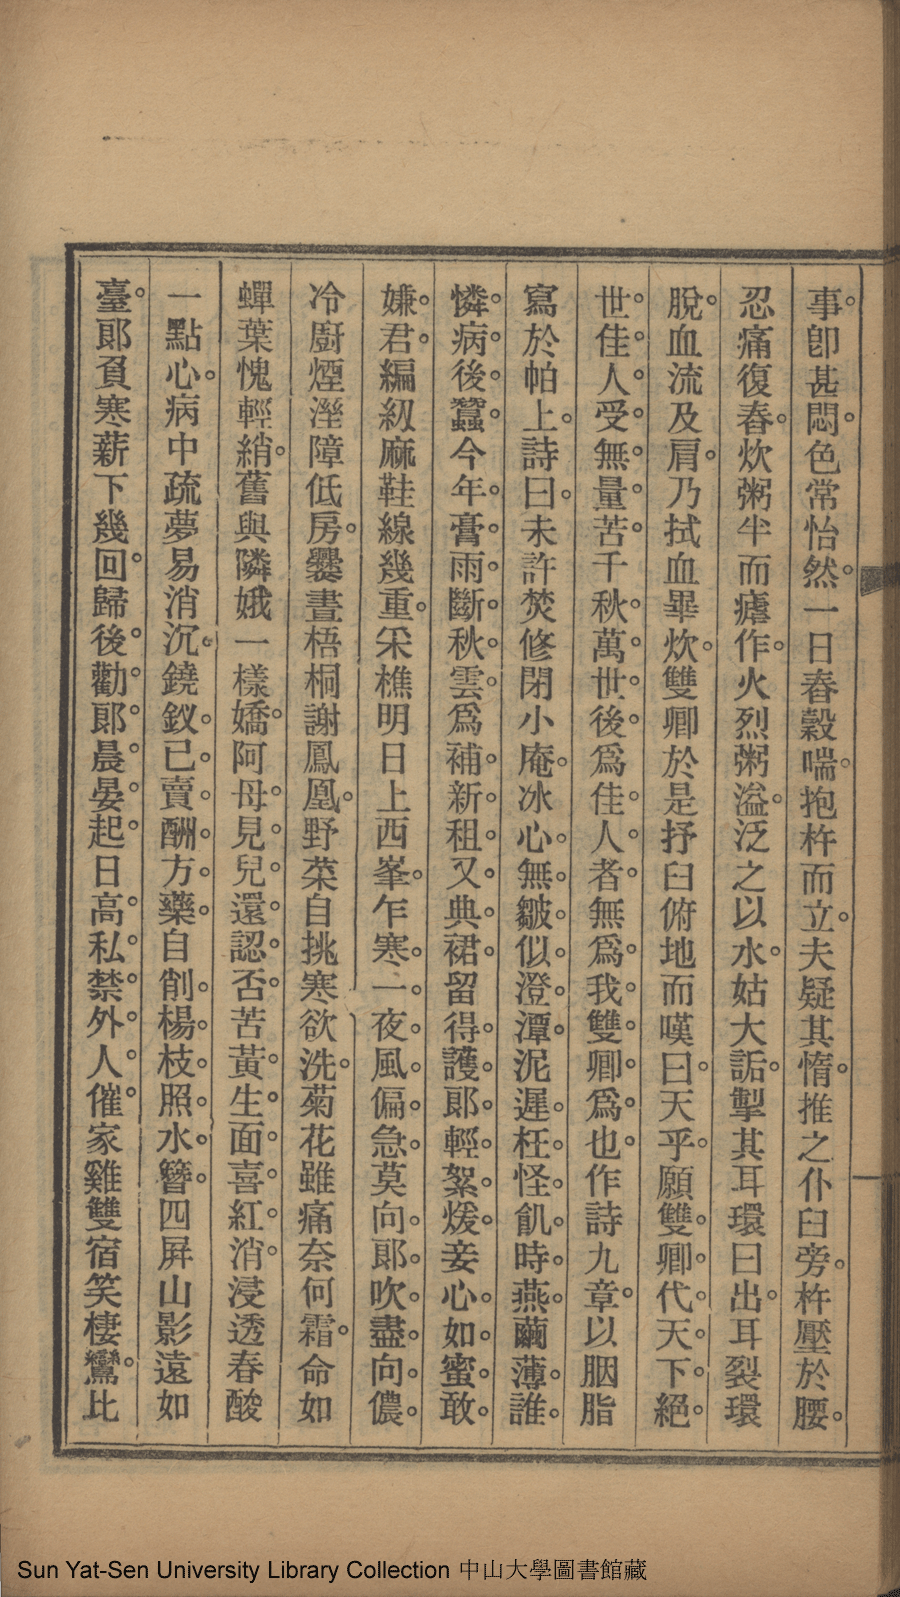 事卽甚悶色常怡然一日舂穀喘抱杵而立夫疑其惰推之仆臼旁杵壓於腰
忍痛復舂炊粥半而瘧作火烈粥溢泛之以水姑大詬掣其耳環曰出耳裂環
脫血流及肩乃拭血畢炊雙卿於是抒臼俯地而嘆曰天乎願雙卿代天下絕
世佳人受無量苦千秋萬世後爲佳人者無爲我雙卿爲也作詩九章以胭脂
寫於帕上詩曰未許焚修閉小庵冰心無皺似澄潭泥遲枉怪飢時燕繭薄誰
憐病後蠶今年膏雨斷秋雲爲補新租又典裙留得護郞輕絮煖妾心如蜜敢
嫌君編紉麻鞋線幾重采樵明日上西峯乍寒一夜風偏急莫向郞吹盡向儂
冷廚煙溼障低房爨晝梧桐謝鳳凰野菜自挑寒欲洗菊花雖痛奈何霜命如
蟬葉愧輕綃舊與隣娥一樣嬌阿母見兒還認否苦黃生面喜紅消浸透春酸
一點心病中疏夢易消沉鐃釵已賣酬方藥自削楊枝照水簪四屏山影遠如
臺郞負寒薪下幾回歸後勸郞晨晏起日高私禁外人催家雞雙宿笑棲鸞比
Sun Yat-Sen University Library Collection 中山大學圖書館藏